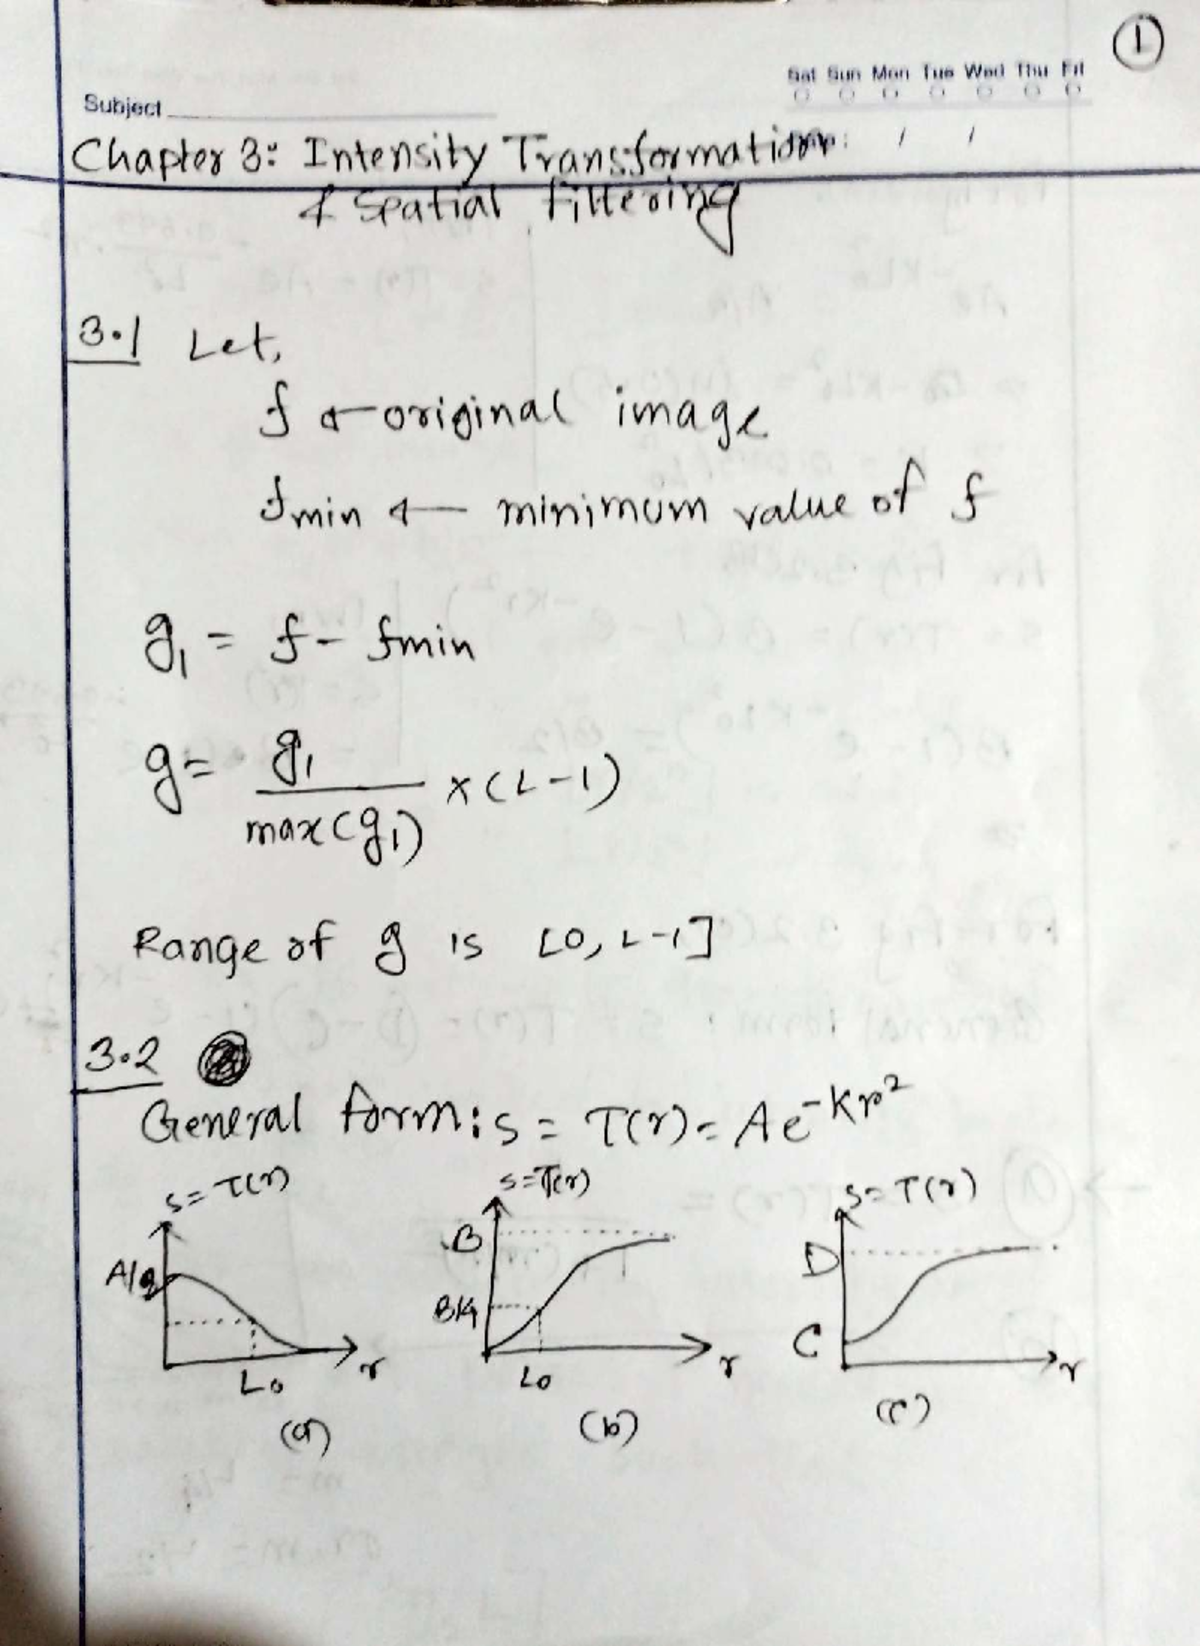 1
Sat Sun Mon Tue Wed Thu Fri
Subject
/ /
Chapter 3: Intensity Transformation
& Spatial Filtering
3.1 Let,
f ← original image
fmin ← minimum value of f
g₁ = f - fmin
g = g₁ / max(g₁) × (L-1)
Range of g is [0, L-1]
3.2
General form: s = T(r) = Ae^-Kr²
s = T(r) s=T(r) s=T(r)
B D
A/2 B/4 C
L₀ r L₀ r r
(a) (b) (c)